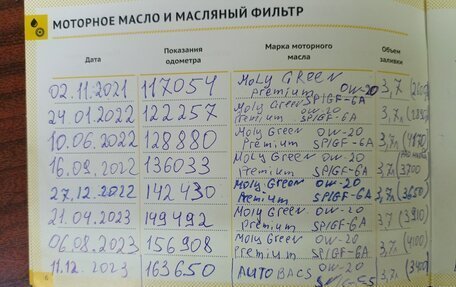 МОТОРНОЕ МАСЛО И МАСЛЯНЫЙ ФИЛЬТР
Дата Показания одометра Марка моторного масла Объем заливки
02.11.2021 117054 Moly GREEN Premium 0W-20 SPIGF-6A 3,7
24.01.2022 122257 Moly GREEN Premium 0W-20 SPIGF-6A 3,7л
10.06.2022 128880 Moly Green Premium 0W-20 SPIGF-6A 3,7л (4170)
16.09.2022 136033 Moly Green Premium 0W-20 SPIGF-6A 3,7л 3700
27.12.2022 142430 Moly Green Premium 0W-20 SPIGF-6A 3,7л (3650)
21.04.2023 149492 Moly Green Premium 0W-20 SPIGF-6A 3,7 (3910)
06.08.2023 156908 Moly Green Premium 0W-20 SPIGF-6A 3,7л (4100)
11.12.2023 163650 AUTOBACS 0W-20 3,7л (3400)
6